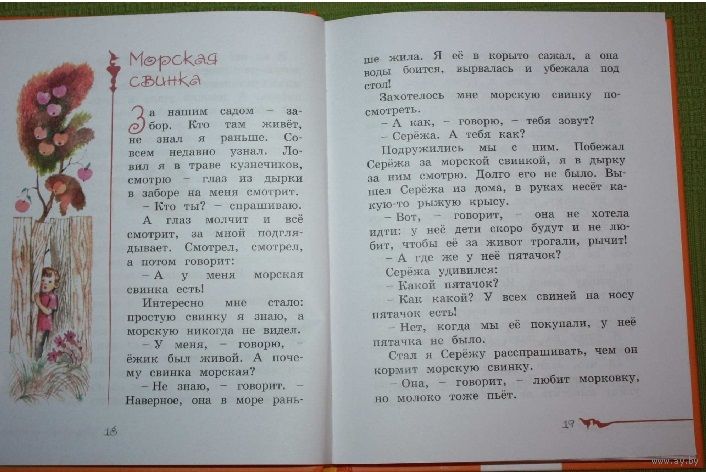 Морская
свинка
За нашим садом – за-
бор. Кто там живёт,
не знал я раньше. Со-
всем недавно узнал. Ло-
вил я в траве кузнечиков,
смотрю – глаз из дырки
в заборе на меня смотрит.
– Кто ты? – спрашиваю.
А глаз молчит и всё
смотрит, за мной подгля-
дывает. Смотрел, смотрел,
а потом говорит:
– А у меня морская
свинка есть!
Интересно мне стало:
простую свинку я знаю, а
морскую никогда не видел.
– У меня, – говорю, –
ёжик был живой. А поче-
му свинка морская?
– Не знаю, – говорит. –
Наверное, она в море рань-
18
ше жила. Я её в корыто сажал, а она
воды боится, вырвалась и убежала под
стол!
Захотелось мне морскую свинку по-
смотреть.
– А как, – говорю, – тебя зовут?
– Серёжа. А тебя как?
Подружились мы с ним. Побежал
Серёжа за морской свинкой, я в дырку
за ним смотрю. Долго его не было. Вы-
шел Серёжа из дома, в руках несёт ка-
кую-то рыжую крысу.
– Вот, – говорит, – она не хотела
идти: у неё дети скоро будут и не лю-
бит, чтобы её за живот трогали, рычит!
– А где же у неё пятачок?
Серёжа удивился:
– Какой пятачок?
– Как какой? У всех свиней на носу
пятачок есть!
– Нет, когда мы её покупали, у неё
пятачка не было.
Стал я Серёжу расспрашивать, чем он
кормит морскую свинку.
– Она, – говорит, – любит морковку,
но молоко тоже пьёт.
19
www.ay.by